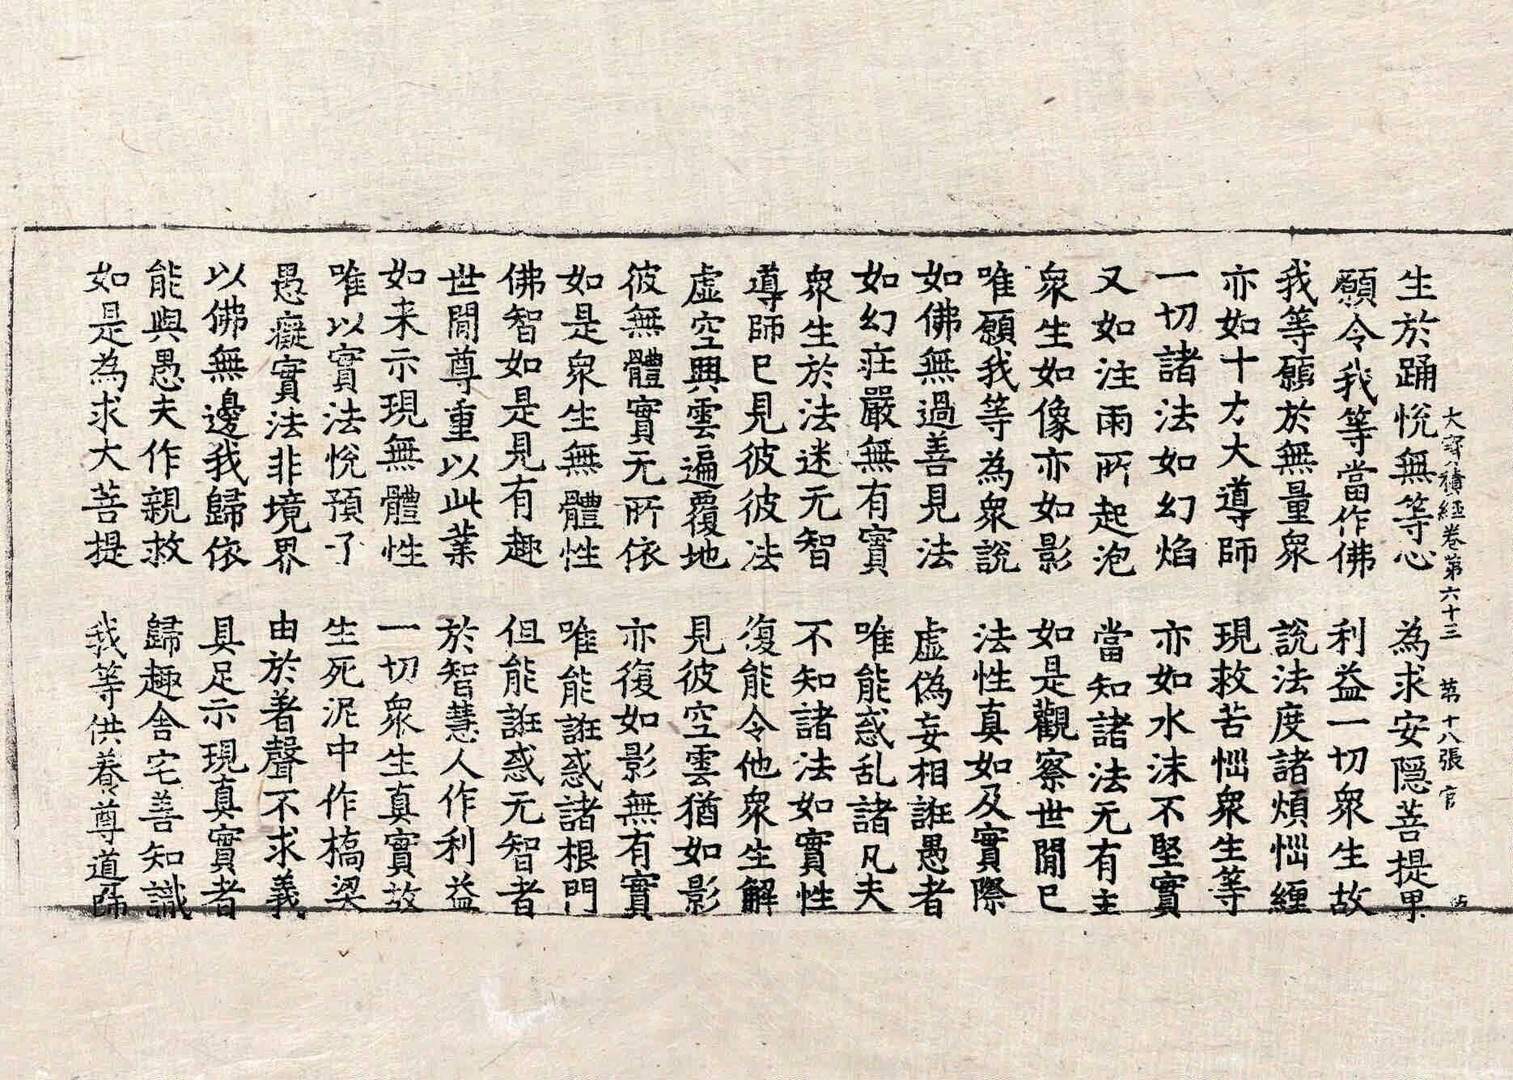 大寳積經卷第六十三 第十八張 官
生於踊悅無等心 為求安隱菩提果
願令我等當作佛 利益一切衆生故
我等願於無量衆 說法度諸煩惱纏
亦如十方大導師 現救苦惱衆生等
一切諸法如幻焰 亦如水沫不堅實
又如注雨所起泡 當知諸法无有主
衆生如像亦如影 如是觀察世閒已
唯願我等為衆說 法性真如及實際
如佛無過善見法 虛偽妄相誑愚者
如幻莊嚴無有實 唯能惑乱諸凡夫
衆生於法迷无智 不知諸法如實性
導師已見彼彼法 復能令他衆生解
虛空興雲遍覆地 見彼空雲猶如影
彼無體實无所依 亦復如影無有實
如是衆生無體性 唯能誑惑諸根門
佛智如是見有趣 但能誑惑无智者
世閒尊重以此業 於智慧人作利益
如来示現無體性 一切衆生真實故
唯以實法悅預了 生死泥中作橋梁
愚癡實法非境界 由於著聲不求義
以佛無邊我歸依 具足示現真實者
能與愚夫作親救 歸趣舍宅善知識
如是為求大菩提 我等供養尊道師